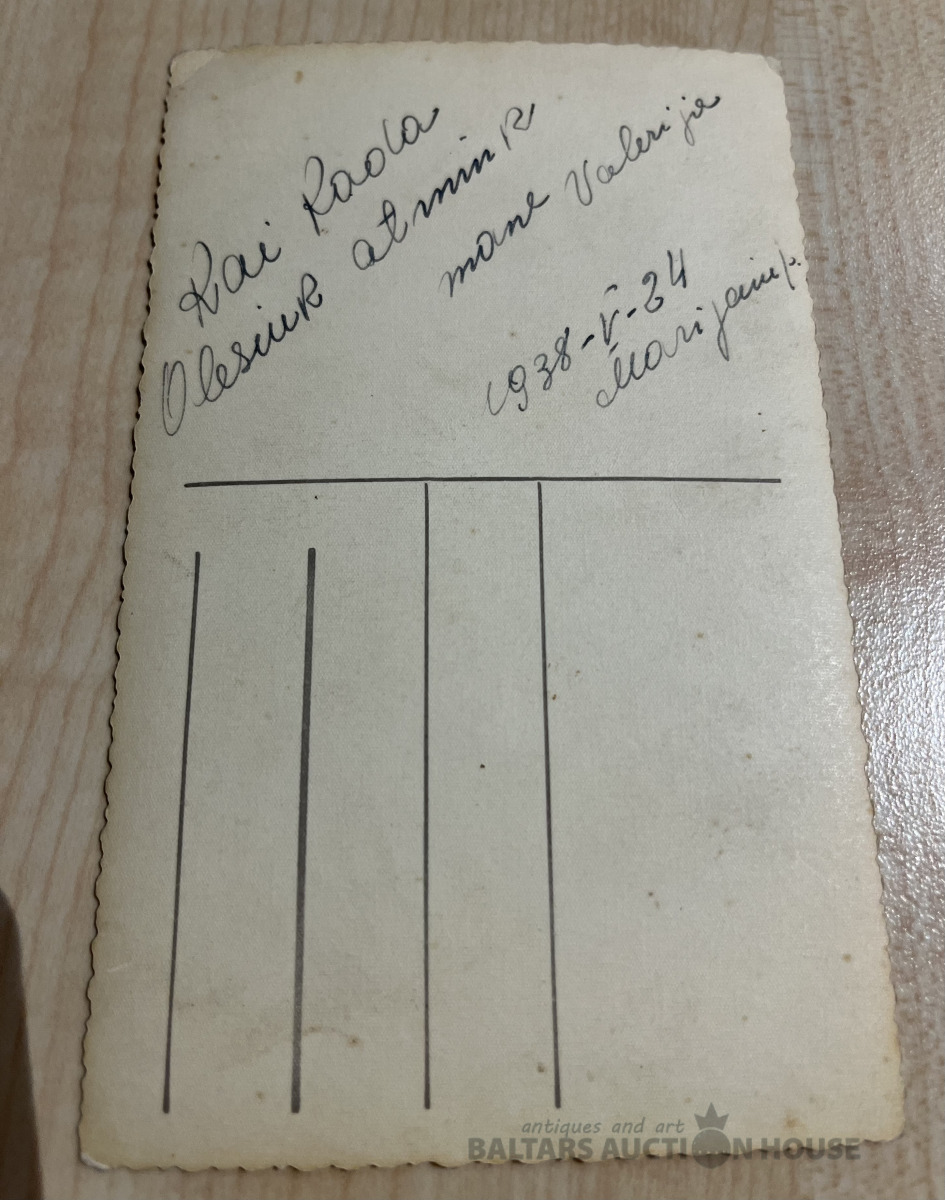 Kai Kada
Olesiuk atmink
mane Valerija
1938-V-24
Marijamp.
antiques and art
BALTARS AUCTION HOUSE